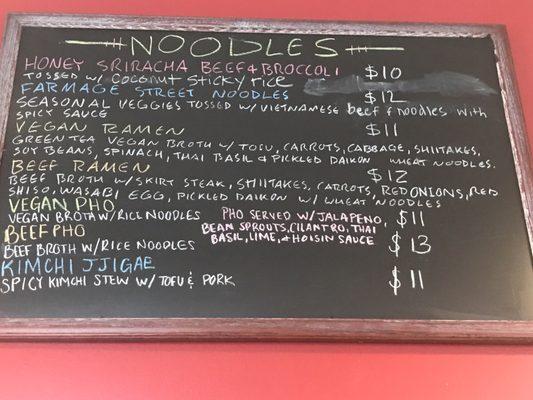 NOODLES
HONEY SRIRACHA BEEF & BROCCOLI $10
TOSSED W/ COCONUT STICKY RICE
FARMAGE STREET NOODLES $12
SEASONAL VEGGIES TOSSED W/ VIETNAMESE beef & noodles with
SPICY SAUCE
VEGAN RAMEN $11
GREEN TEA VEGAN BROTH W/ TOFU, CARROTS, CABBAGE, SHIITAKES,
SOY BEANS, SPINACH, THAI BASIL & PICKLED DAIKON WHEAT NOODLES.
BEEF RAMEN $12
BEEF BROTH W/ SKIRT STEAK, SHIITAKES, CARROTS, RED ONIONS, RED
SHISO, WASABI EGG, PICKLED DAIKON W/ WHEAT NOODLES
VEGAN PHO $11
VEGAN BROTH W/ RICE NOODLES
BEEF PHO $13
BEEF BROTH W/ RICE NOODLES
PHO SERVED W/ JALAPENO,
BEAN SPROUTS, CILANTRO, THAI
BASIL, LIME, & HOISIN SAUCE
KIMCHI JJIGAE $11
SPICY KIMCHI STEW W/ TOFU & PORK